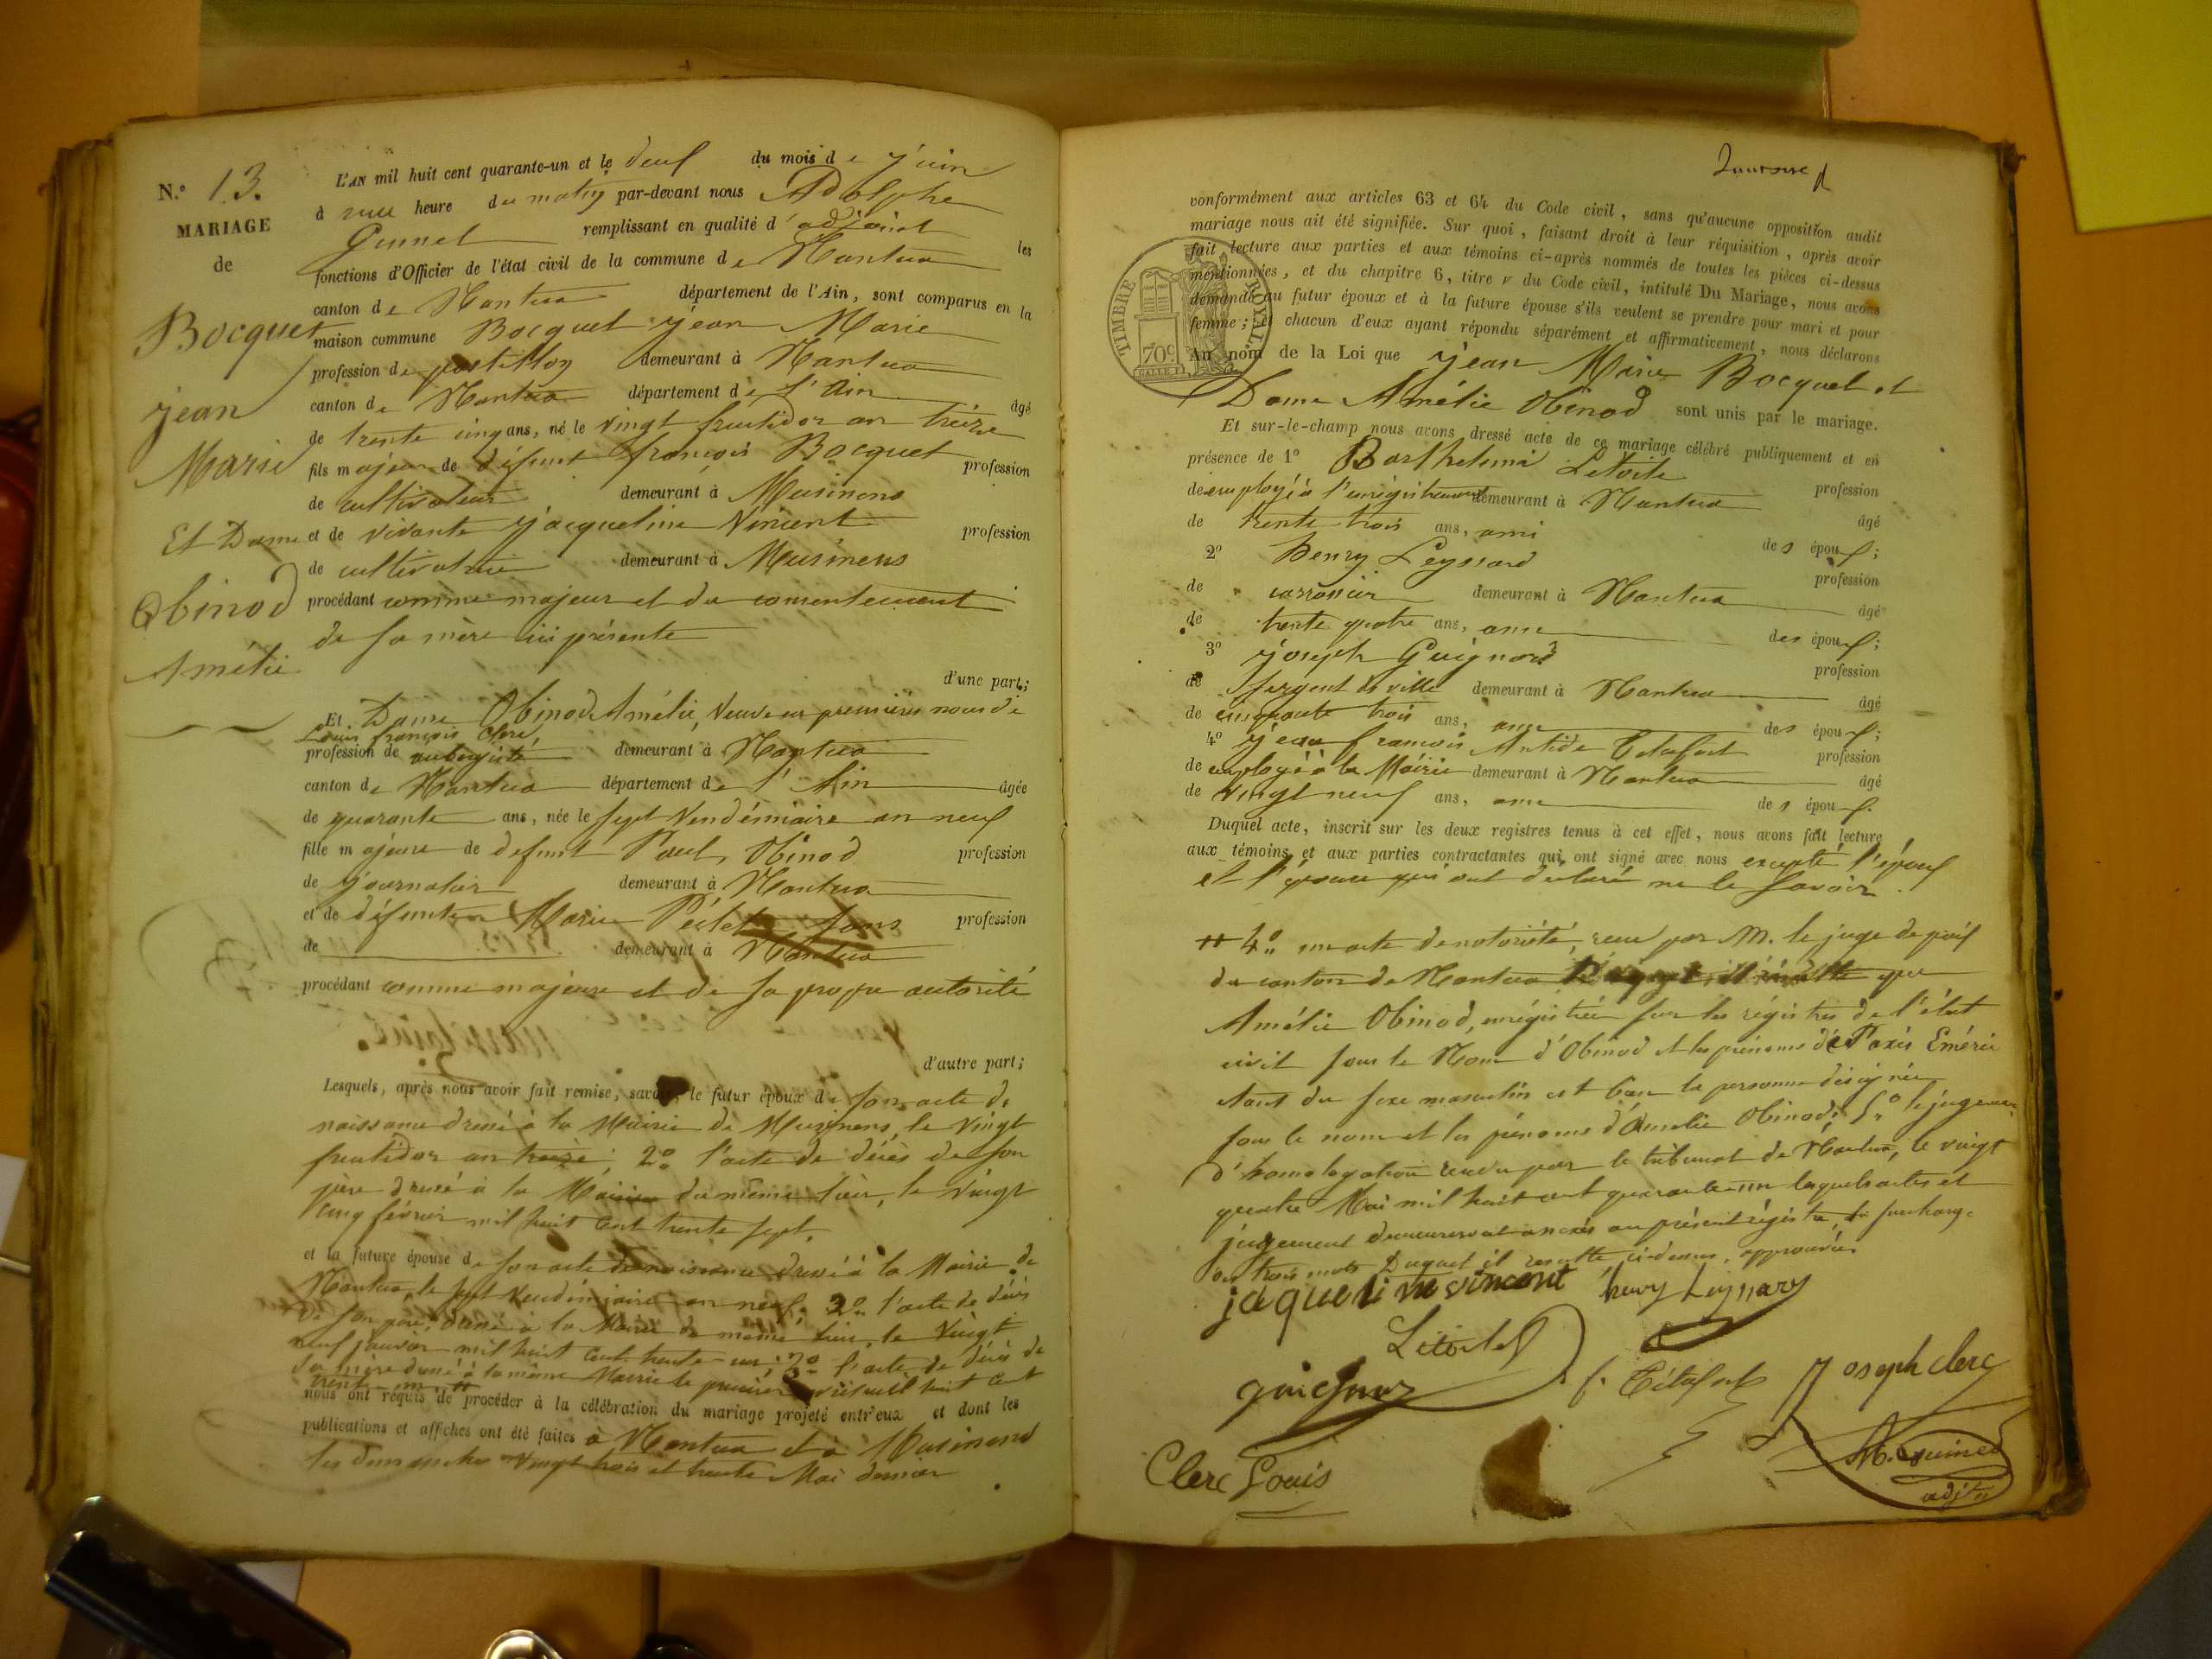 N.º 13.
MARIAGE
de
Bocquet
jean
Marie
Et Dame
Obinod
Amélie
L'AN mil huit cent quarante-un et le deux du mois de juin
à heure du matin par-devant nous Adolphe
remplissant en qualité d'adjoint les
fonctions d'Officier de l'état civil de la commune de Nantua
canton de Nantua département de l'Ain, sont comparus en la
maison commune Bocquet jean Marie
profession de postillon demeurant à Nantua
canton de Nantua département de l'Ain âgé
de trente cinq ans, né le vingt fructidor an treize
fils majeur de défunt françois Bocquet profession
de cultivateur demeurant à Musinens
et de vivante jacqueline Vincent profession
de cultivatrice demeurant à Musinens
procédant comme majeur et du consentement
de sa mère ici présente
d'une part;
Et Dame Obinod Amélie, Veuve en premières noces de
Louis françois Clerc,
profession de aubergiste demeurant à Nantua
canton de Nantua département de l'Ain âgée
de quarante ans, née le sept Vendémiaire an neuf
fille majeure de defunt Paul Obinod profession
de journalier demeurant à Nantua
et de défunte Marie Péclet sans profession
de demeurant à Nantua
procédant comme majeure et de sa propre autorité
d'autre part;
Lesquels, après nous avoir fait remise, savoir, le futur époux de son acte de
naissance dressé à la Mairie de Musinens, le vingt
fructidor an treize; 2º l'acte de décès de son
père dressé à la Mairie du même lieu, le vingt
cinq février mil huit cent trente sept.
et la future épouse de son acte de naissance dressé à la Mairie de
Nantua, le sept Vendémiaire an neuf. 2º l'acte de décès
de son père, dressé à la Mairie du même lieu, le vingt
neuf janvier mil huit cent trente un; 3º l'acte de décès de
sa mère dressé à la même Mairie le premier mil huit cent
trente
nous ont requis de procéder à la célébration du mariage projeté entr'eux et dont les
publications et affiches ont été faites à Nantua et à Musinens
les dimanches vingt trois et trente Mai dernier
conformément aux articles 63 et 64 du Code civil, sans qu'aucune opposition audit
mariage nous ait été signifiée. Sur quoi, faisant droit à leur réquisition, après avoir
fait lecture aux parties et aux témoins ci-après nommés de toutes les pièces ci-dessus
mentionnées, et du chapitre 6, titre v du Code civil, intitulé Du Mariage, nous avons
demandé au futur époux et à la future épouse s'ils veulent se prendre pour mari et pour
femme; et chacun d'eux ayant répondu séparément et affirmativement, nous déclarons
TIMBRE ROYAL
70 c
Au nom de la Loi que jean Marie Bocquet et
Dame Amélie Obinod sont unis par le mariage.
Et sur-le-champ nous avons dressé acte de ce mariage célébré publiquement et en
présence de 1º Barthelemi Letoile profession
de employé à l'enrégistrement demeurant à Nantua âgé
de trente trois ans, ami des époux;
2º henry Leyssard profession
de demeurant à Nantua âgé
de trente quatre ans, ami des époux;
3º joseph Guignard profession
de sergent de ville demeurant à Nantua âgé
de cinquante trois ans, ami des époux;
4º jean françois Antide profession
de employé à la Mairie demeurant à Nantua âgé
de vingt neuf ans, ami des époux.
Duquel acte, inscrit sur les deux registres tenus à cet effet, nous avons fait lecture
aux témoins et aux parties contractantes qui ont signé avec nous excepté l'époux
et l'épouse qui ont declaré ne le savoir.
4º un acte de notoriété, reçu par M. le juge de paix
du canton de Nantua que
Amélie Obinod, enrégistrée sur les régistres de l'état
civil sous le Nom d'Obinod et les prénoms de
étant du sexe masculin est bien la personne désignée
sous le nom et les prénoms d'Amélie Obinod; 5º le jugement
d'homologation rendu par le tribunal de Nantua, le vingt
quatre Mai mil huit cent quarante un lesquels actes et
jugement demeureront annexés au présent régistre, la surcharge
des trois mots Duquel il resulte, ci-dessus, approuvée.
jaqueline vincent henry Leyssard
Letoile
guignard joseph clerc
Clerc Louis
adjt